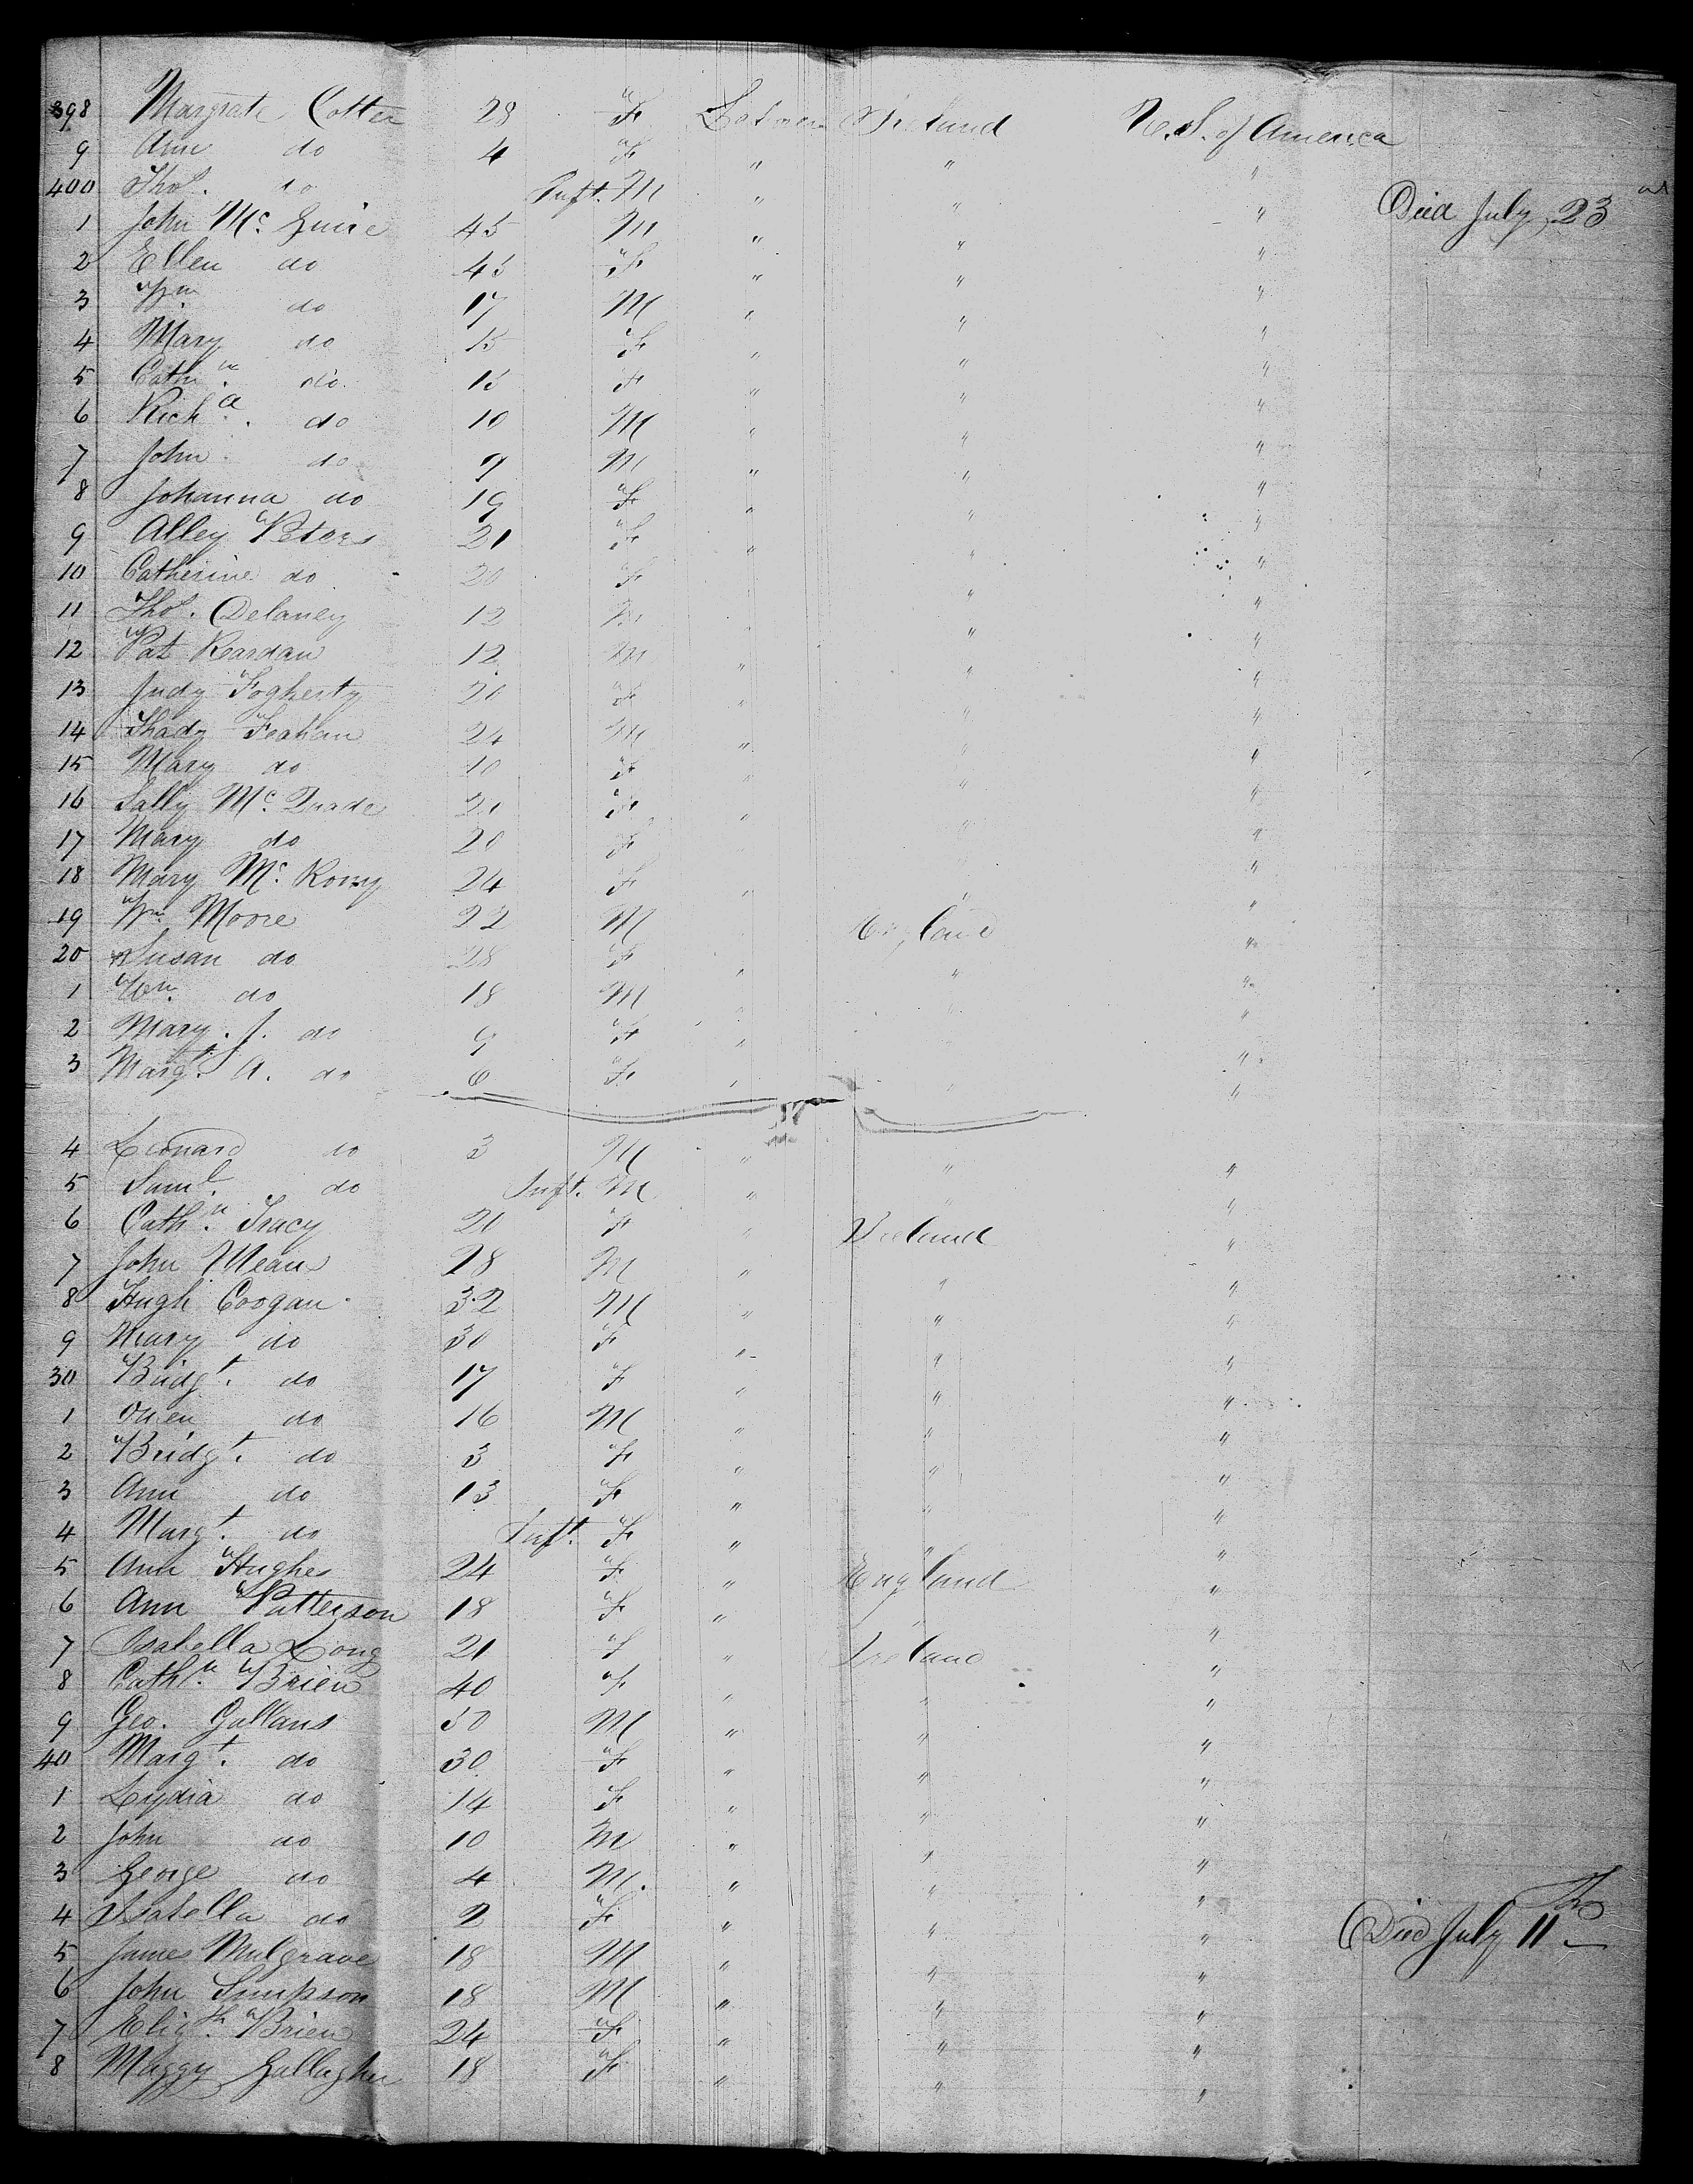 398 Margrate Cotter 28 F Laborer Ireland U.S. of America
9 Ann do 4 F " " "
400 Thos. do Inft. M " " " Died July 23rd
1 John Mc. Guire 45 M " " "
2 Ellen do 45 F " " "
3 Wm do 17 M " " "
4 Mary do 15 F " " "
5 Cathn. do 15 F " " "
6 Richd. do 10 M " " "
7 John do 9 M " " "
8 Johanna do 19 F " " "
9 Alley Peters 21 F " " "
10 Catherine do 20 F " "
11 Thos. Delaney 12 M " "
12 Pat Reardan 12 M " " "
13 Judy Fogherty 20 F " " "
14 Thady Feahan 24 M " " "
15 Mary do 10 F " " "
16 Sally Mc. Quade 21 F " " "
17 Mary do 20 F " "
18 Mary Mc. Romy 24 F " " "
19 Wm. Moore 22 M England "
20 Susan do 28 F " " "
1 Wm. do 18 M "
2 Mary. J. do 9 F " "
3 Margt. A. do 6 F " " "
4 Leonard do 3 M " " "
5 Saml. do Inft. M " " "
6 Cathn. Tracy 20 F " Ireland "
7 John Mean 28 M " " "
8 Hugh Coogan 32 M " " "
9 Mary do 30 F " " "
30 Bridgt. do 17 F " " "
1 Owen do 16 M " " "
2 Bridgt. do 3 F " " "
3 Ann do 13 F " " "
4 Margt. do Inft. F " " "
5 Ann Hughes 24 F " England "
6 Ann Patterson 18 F " " "
7 Isabella Long 21 F " Ireland "
8 Cathn. Brien 40 F " " "
9 Geo. Gallans 50 M " " "
40 Margt. do 30 F " " "
1 Lydia do 14 F " " "
2 John do 10 M " " "
3 George do 4 M. " " "
4 Isabella do 2 F " " " Died July 11th
5 James Mulgrave 18 M " " "
6 John Simpson 18 M " " "
7 Elizth. Brien 24 F " " "
8 Maggy Gallagher 18 F " " "